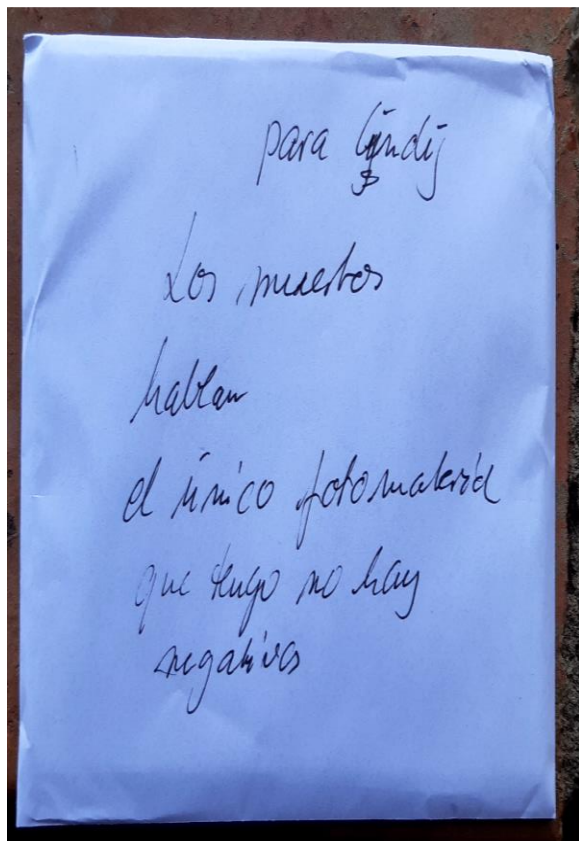 para Cindy
Los muertos
hablan
el único fotomaterial
que tengo no hay
negativos